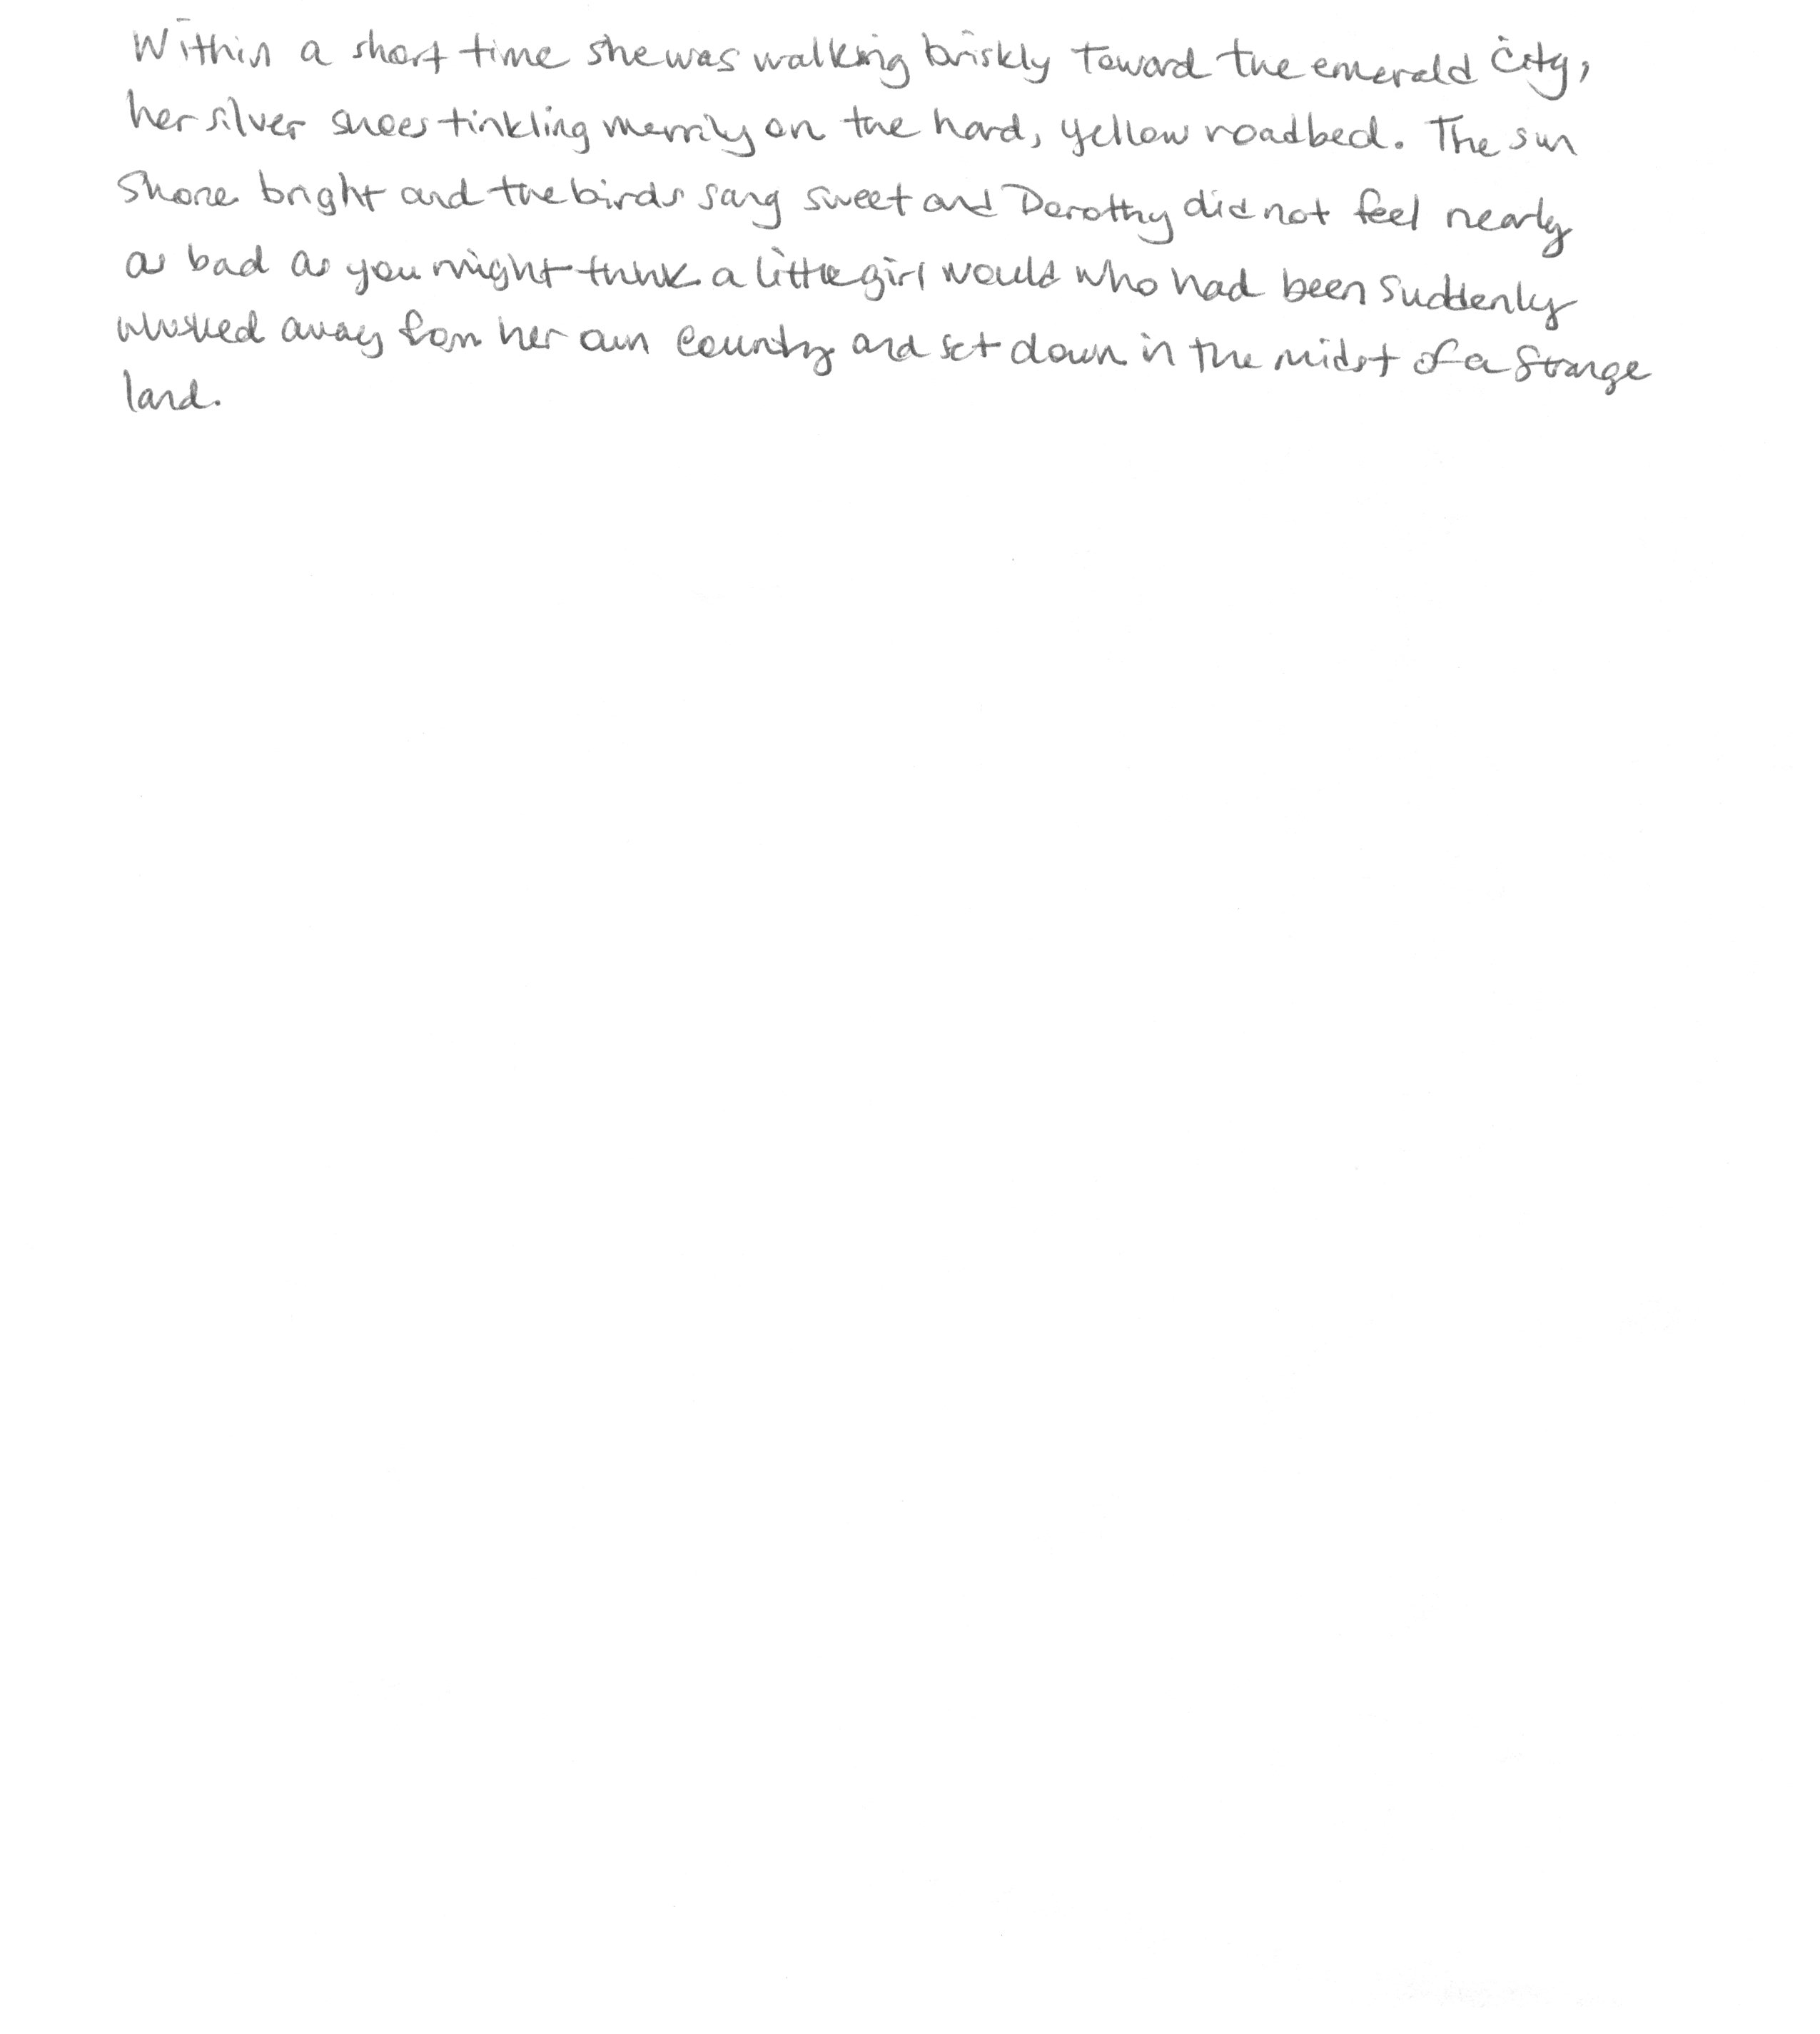 Within a short time she was walking briskly toward the emerald City,
her silver shoes tinkling merrily on the hard, yellow roadbed. The sun
shone bright and the birds sang sweet and Dorothy did not feel nearly
as bad as you might think a little girl would who had been suddenly
whisked away from her own country and set down in the midst of a strange
land.